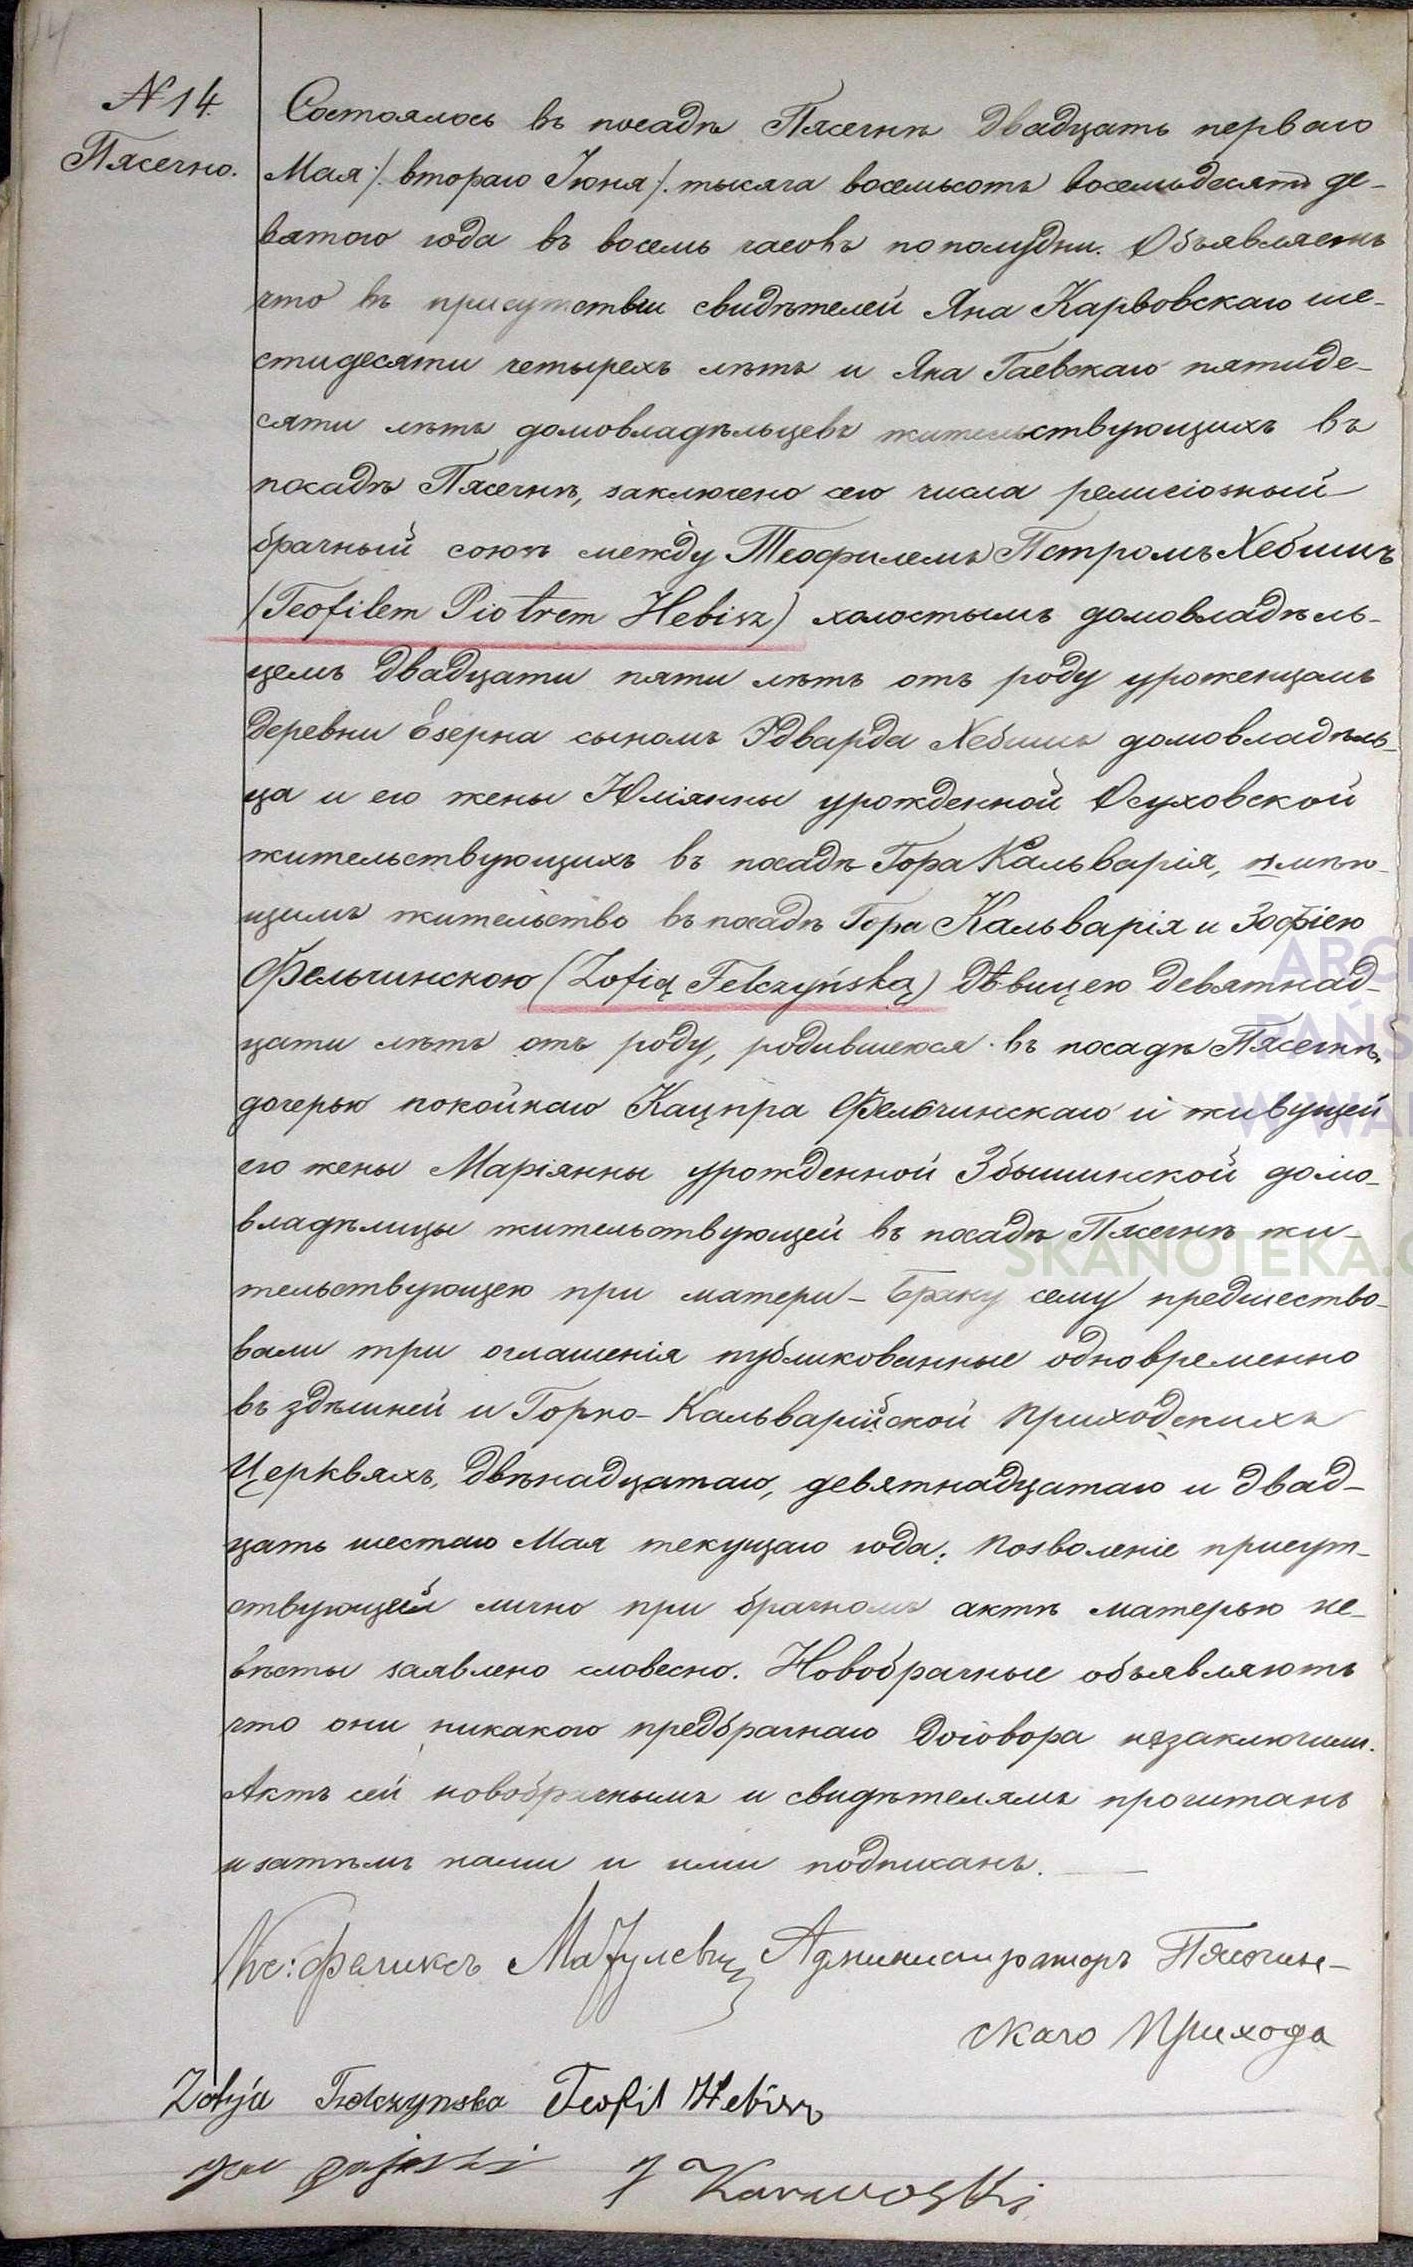 14
№ 14.
Пясечно.
Состоялось въ посадѣ Пясечнѣ двадцать перваго
Мая /. втораго Іюня /. тысяча восемьсотъ восемьдесятъ де-
вятого года въ восемь часовъ пополудни. Объявляемъ
что въ присутствіи свидѣтелей Яна Карвовскаго ше-
стидесяти четырехъ лѣтъ и Яна Гаевскаго пятиде-
сяти лѣтъ домовладѣльцевъ жительствующихъ въ
посадѣ Пясечнѣ, заключено сего числа религіозный
брачный союзъ между Теофилемъ Петромъ Хебишъ
(Teofilem Piotrem Hebisz) холостымъ домовладѣль-
цемъ двадцати пяти лѣтъ отъ роду уроженцомъ
деревни Езерна сыномъ Эдварда Хебишъ домовладѣль-
ца и его жены Юліянны урожденной Осуховской
жительствующихъ въ посадѣ Гора Кальварія, имѣю-
щимъ жительство въ посадѣ Гора Кальварія и Зофіею
Фельчинскою (Zofią Felczyńską) дѣвицею девятнад-
цати лѣтъ отъ роду, родившеюся въ посадѣ Пясечнѣ,
дочерью покойнаго Кацпра Фельчинскаго и живущей
его жены Маріянны урожденной Збышинской домо-
владѣлицы жительствующей въ посадѣ Пясечнѣ жи-
тельствующею при матери - Браку сему предшество-
вали три оглашенія публикованные одновременно
въ здѣшней и Горно-Кальварійской Приходскихъ
Церквяхъ, двѣнадцатаго, девятнадцатаго и двад-
цать шестаго Мая текущаго года; позволеніе присут-
ствующей лично при брачномъ актѣ матерью не-
вѣсты заявлено словесно. Новобрачные объявляютъ
что они никакого предбрачнаго договора незаключили.
Актъ сей новобрачнымъ и свидѣтелямъ прочитанъ
и затѣмъ нами и ими подписанъ.
Кс: Феликсъ Матулевич Администраторъ Пясечин-
скаго Прихода
Zofija Felczynska Teofil Hebisz
Jan Gajeski J Karwoski
ARC
PAŃS
W WA
SKANOTEKA.